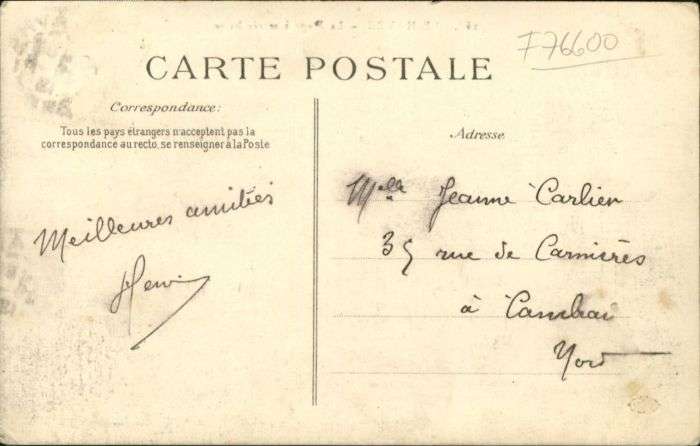 F76600
CARTE POSTALE
Correspondance:
Tous les pays étrangers n'acceptent pas la
correspondance au recto, se renseigner à la Poste
Adresse
Meilleures amitiés
Henri
Mlle Jeanne Carlier
35 rue de Carnières
à Cambrai
Nord